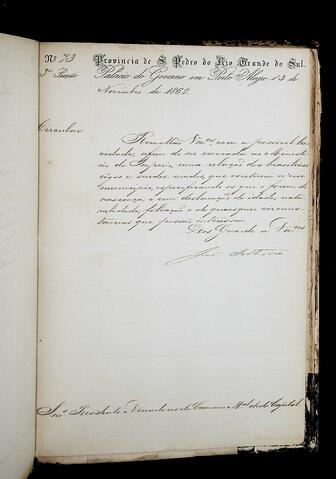 Nº 73 Provincia de S. Pedro do Rio Grande do Sul.
3ª Secção Palacio do Governo em Porto Alegre 13 de
Novembro de 1862.
Circular
Remettão Vmces com a possivel bre-
vidade, afim de ser enviada ao Ministe-
rio do Imperio, uma relação dos brasileiros
cegos e surdos-mudos, que existirem n'esse
municipio, especificando os que o forem de
nascença, e com declaração da idade, natu-
ralidade, filiação e de quaesquer circums-
tancias que possão interessar.
Deos Guarde a Vmces
Snrs. Presidente e Vereadores da Camara Mal desta Capital